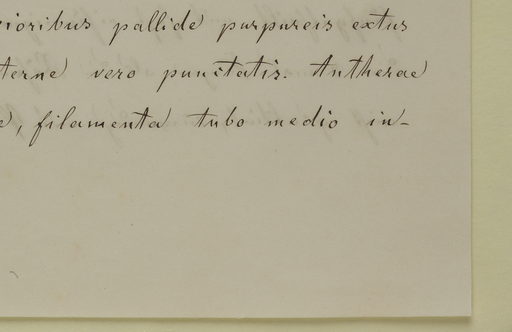 rioribus pallide purpureis extus
terne vero punctatis. Antherae
e, filamenta tubo medio in-